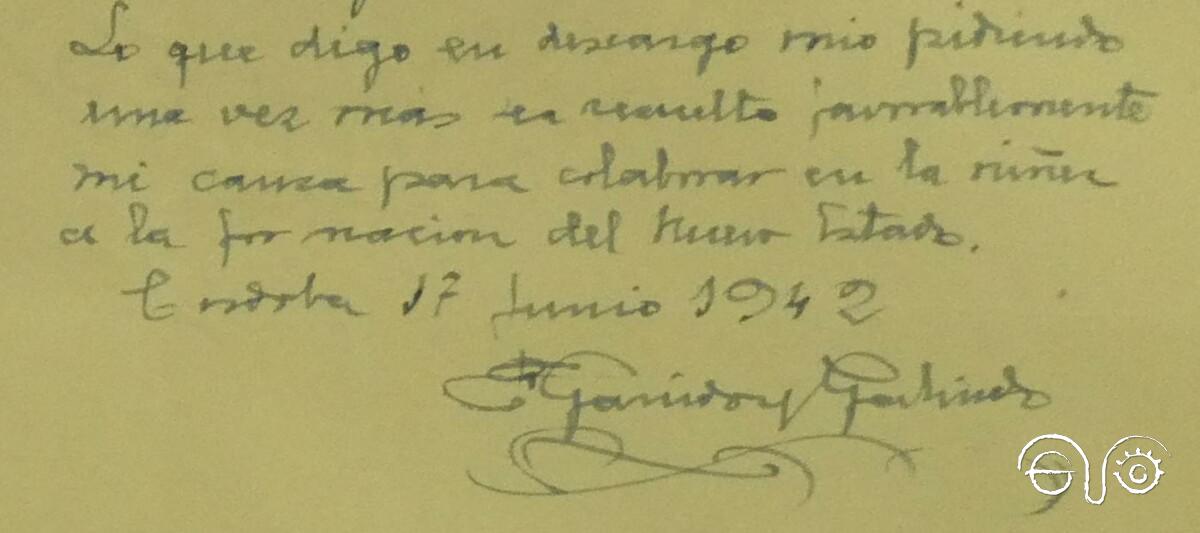 Lo que digo en descargo mio pidiendo
una vez mas se resuelto favorablemente
mi causa para colaborar en la niñez
a la formacion del Nuevo Estado.
Cordoba 17 Junio 1942
Garrido y Galindo